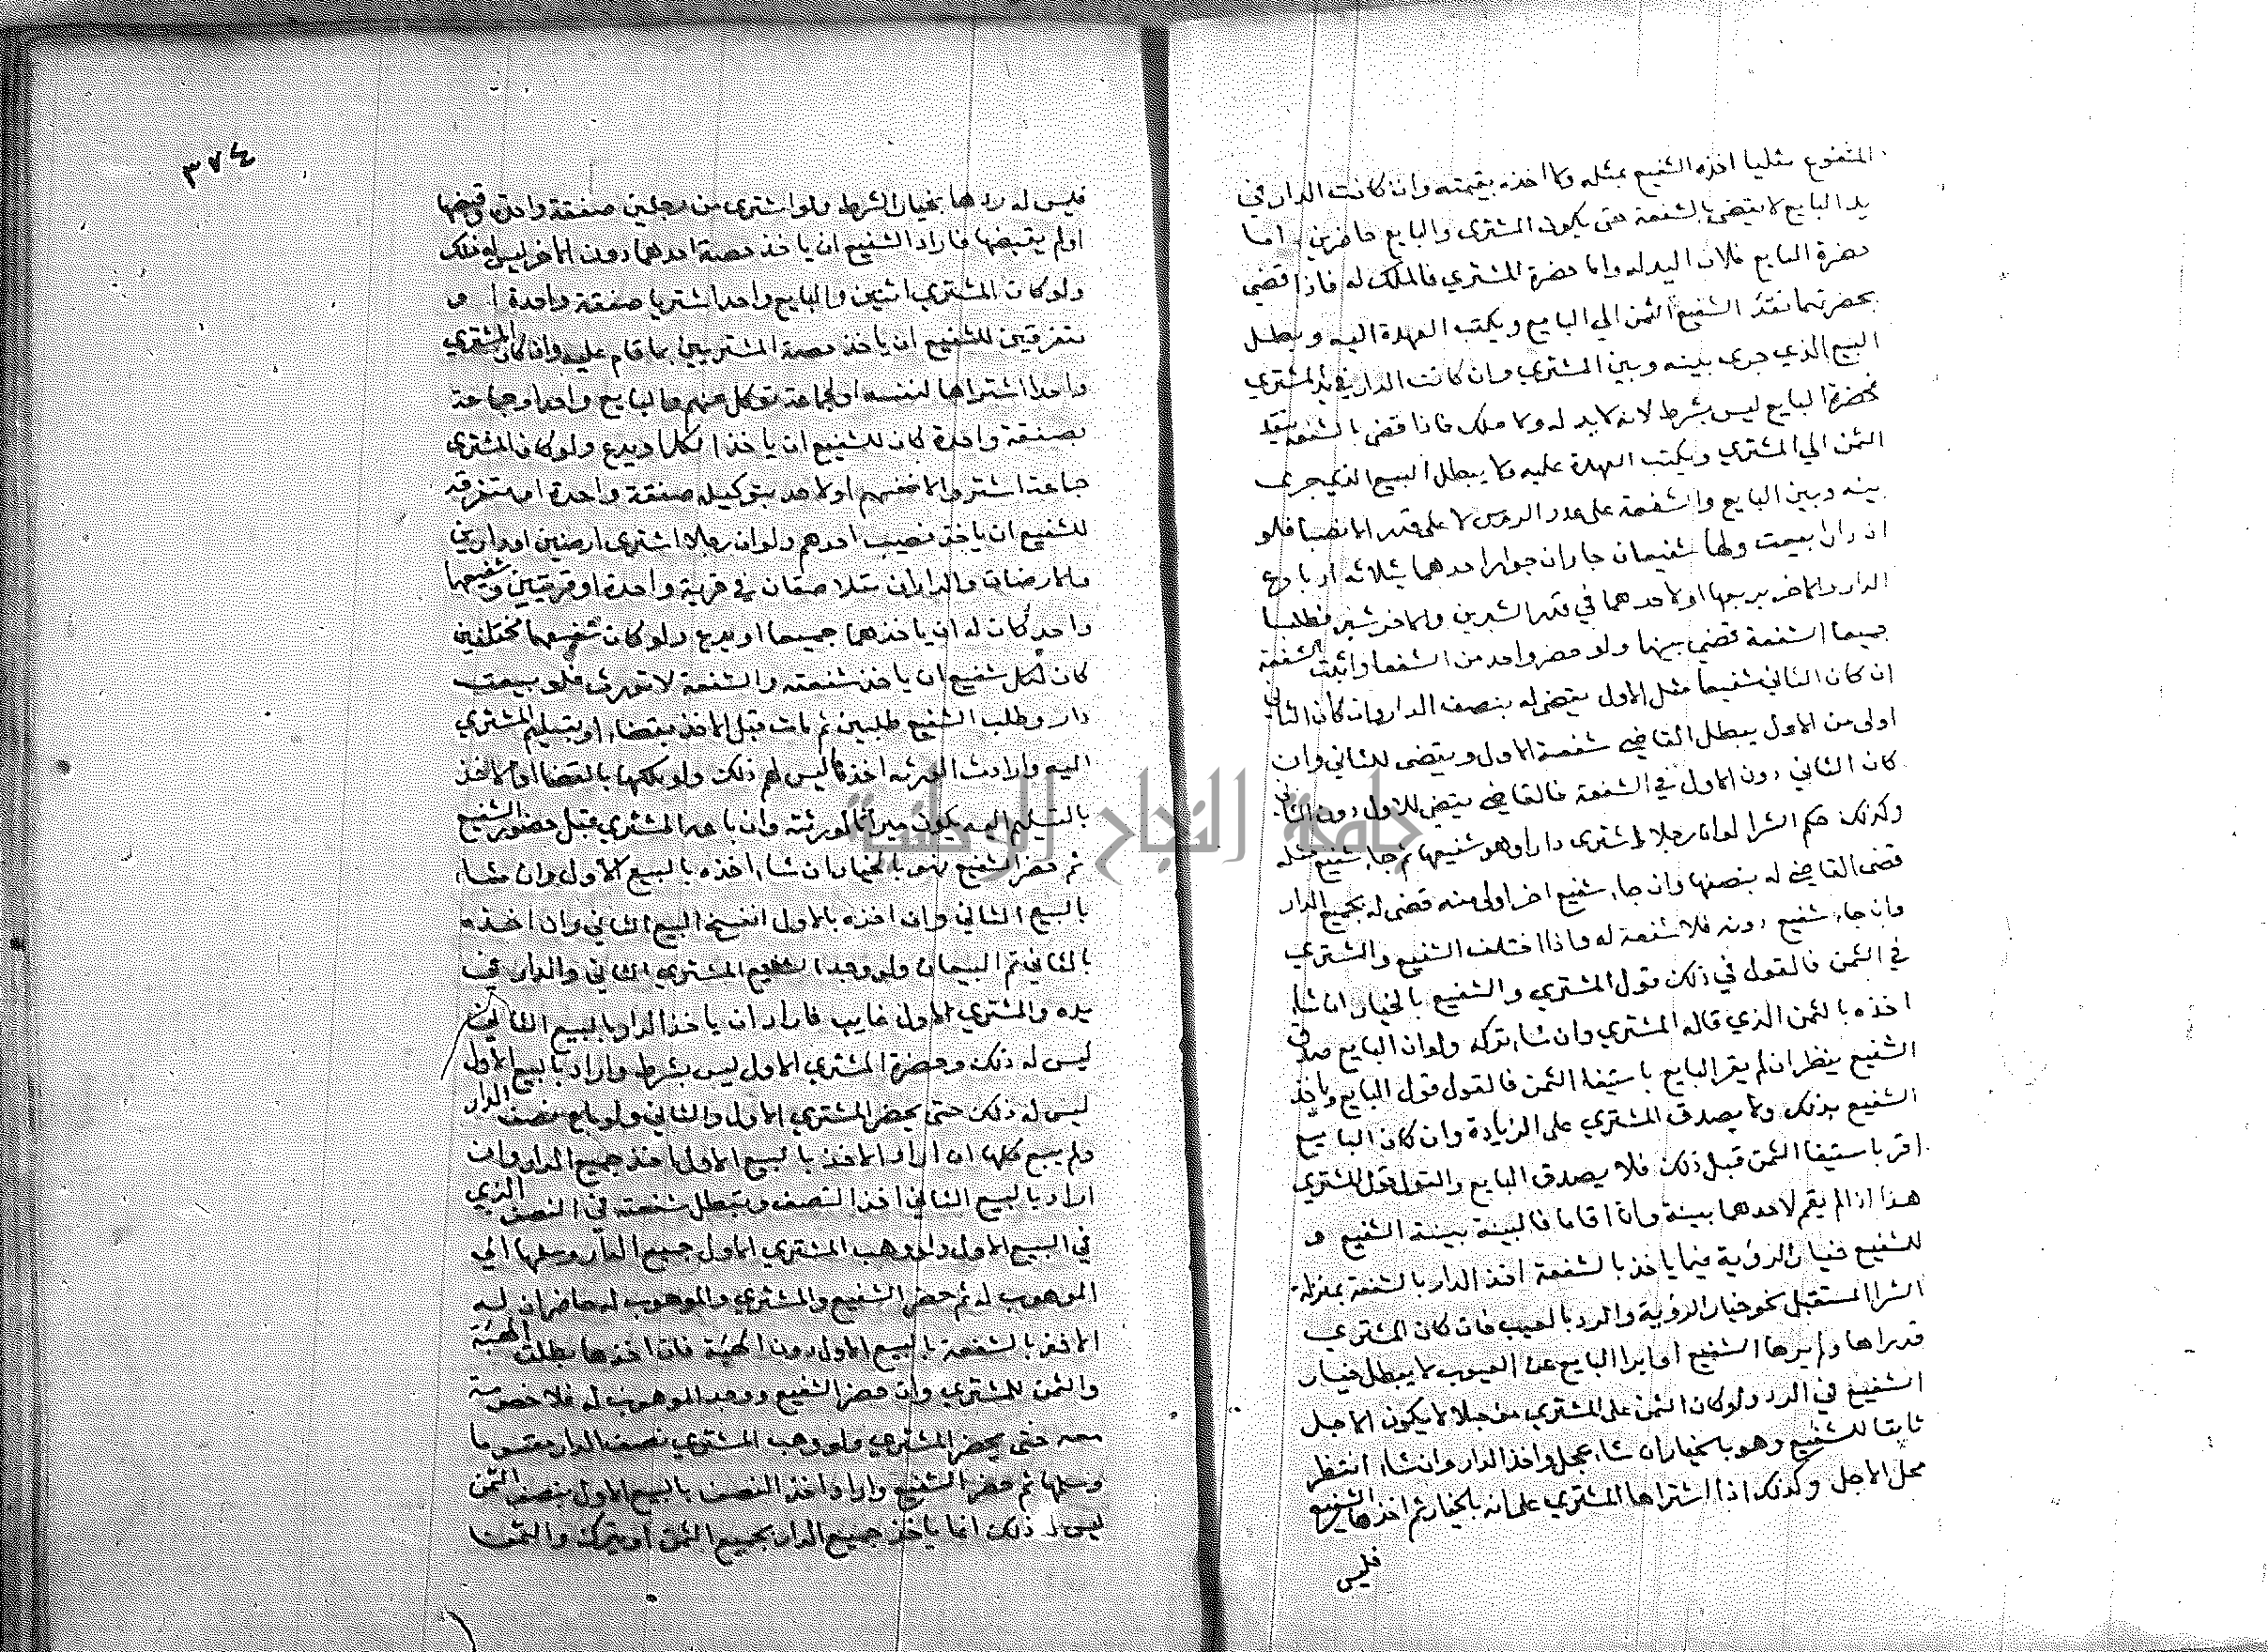 المنقوع مثليا اخذه الشفيع بمثله والا اخذه بقيمته وان كانت الدار في
يد البايع لا يقضي بالشفعة حتى يكون المشتري والبايع حاضرين اما
حضرة البايع فلان اليد له واما حضرة المشتري فالملك له فاذا قضي
بحضرتهما نقد الشفيع الثمن الي البايع ويكتب العهدة اليه ويبطل
البيع الذي جرى بينه وبين المشتري وان كانت الدار في يد المشتري
فحضرة البايع ليس بشرط لانه لا يد له ولا ملك فاذا قضي بالشفعة ينقد
الثمن الي المشتري ويكتب العهدة عليه ولا يبطل البيع الذي جرى
بينه وبين البايع والشفعة على عدد الروس لا على قدر الانصبا فلو
ان دارا بيعت ولها شفيعان جاران جوار احدهما بثلاثة ارباع
الدار والاخر بربعها او لاحدهما في قدر الشبرين والاخر شبر فطلبا
جميعا الشفعة قضي بينهما ولو حضر واحد من الشفعا واثبت الشفعة
ان كان الثاني شفيعا مثل الاول يقضي له بنصف الدار وان كان الثاني
اولى من الاول يبطل القاضي شفعة الاول ويقضى للثاني وان
كان الثاني دون الاول في الشفعة فالقاضي يقضي للاول دون الثاني
وكذلك حكم الشرا لو ان رجلا اشترى دارا وهو شفيعها ثم جاء شفيع مثله
قضى القاضي له بنصفها وان جاء شفيع اخر اولى منه قضى له بجميع الدار
وان جاء شفيع دونه فلا شفعة له واذا اختلف الشفيع والمشتري
في الثمن فالقول في ذلك قول المشتري والشفيع بالخيار ان شاء
اخذه بالثمن الذي قاله المشتري وان شاء تركه ولو ان البايع صدق
الشفيع ينظر ان لم يقر البايع باستيفا الثمن فالقول قول البايع وياخذ
الشفيع بذلك ولا يصدق المشتري على الزيادة وان كان البايع
اقر باستيفا الثمن قبل ذلك فلا يصدق البايع والقول قول المشتري
هذا اذا لم يقم لاحدهما بينة وان اقاما فالبينة بينة الشفيع و
للشفيع خيار الرؤية فيما ياخذ بالشفعة اخذ الدار بالشفعة بمنزلة
الشرا المستقبل نحو خيار الرؤية والرد بالعيب فان كان المشتري
قد راها ولم يرها الشفيع او ابرا البايع عن العيوب لا يبطل خيار
الشفيع في الرد ولو كان الثمن على المشتري مؤجلا لا يكون الاجل
ثابتا للشفيع وهو بالخيار ان شاء عجل واخذ الدار وان شاء انتظر
محل الاجل وكذلك اذا اشتراها المشتري على انه بالخيار ثم اخذها الشفيع
فليس
٣٧٤
فليس له ردها بخيار الشرط ولو اشترى من رجلين صفقة واحدة وقبضها
اولم يقبضها فاراد الشفيع ان ياخذ حصة احدهما دون الاخر ليس له ذلك
ولو كان المشتري اثنين والبايع واحد اشتريا صفقة واحدة او
متفرقين للشفيع ان ياخذ حصة المشتريين بما قام عليه وان كان المشتري
واحدا اشتراها لنفسه او لجماعة توكل عنهم والبايع واحد او جماعة
بصفقة واحدة كان للشفيع ان ياخذ الكل او يدع ولو كان المشتري
جماعة اشتروا لانفسهم او لاحد بتوكيله صفقة واحدة او متفرقة
للشفيع ان ياخذ نصيب احدهم ولو ان رجلا اشترى ارضين او دارين
والارضان والداران متلاصقان في قرية واحدة او قريتين وشفيعها
واحد كان له ان ياخذهما جميعا او يدع ولو كان شفيعهما مختلفين
كان لكل شفيع ان ياخذ شفعته والشفعة لا تورث فلو بيعت
دار وطلب الشفيع طلبين ثم مات قبل الاخذ بقضاء او بتسليم المشتري
اليه وارادت الورثة اخذها ليس لهم ذلك ولو ملكها بالقضا او الاخذ
بالتسليم اليه يكون ميراثا لورثته وان باعه المشتري قبل حضور الشفيع
ثم حضر الشفيع فهو بالخيار ان شاء اخذه بالبيع الاول وان شاء
بالبيع الثاني وان اخذه بالاول انفسخ البيع الثاني وان اخذه
بالثاني تم البيعان ولو وجد الشفيع المشتري الثاني والدار في
يده والمشتري الاول غايب فاراد ان ياخذ الدار بالبيع الثاني
ليس له ذلك وحضرة المشتري الاول ليس بشرط واراد بالبيع الاول
ليس له ذلك حتى يحضر المشتري الاول والثاني ولو بايع نصف الدار
ولم يبع كلها ان اراد الاخذ بالبيع الاول ياخذ جميع الدار وان
اراد بالبيع الثاني اخذ النصف وتبطل شفعته في النصف الذي
في البيع الاول ولو وهب المشتري الاول جميع الدار وسلمها الي
الموهوب له ثم حضر الشفيع والمشتري والموهوب له حاضران له
الاخذ بالشفعة بالبيع الاول دون الهبة فان اخذها بطلت الهبة
والثمن للمشتري وان حضر الشفيع ووجد الموهوب له فلا خصومة
معه حتى يحضر المشتري ولو وهب المشتري نصف الدار مقسوما
وسلمها ثم حضر الشفيع واراد اخذ النصف بالبيع الاول بنصف الثمن
ليس له ذلك انما ياخذ جميع الدار بجميع الثمن او يترك
جامعة النجاح الوطنية